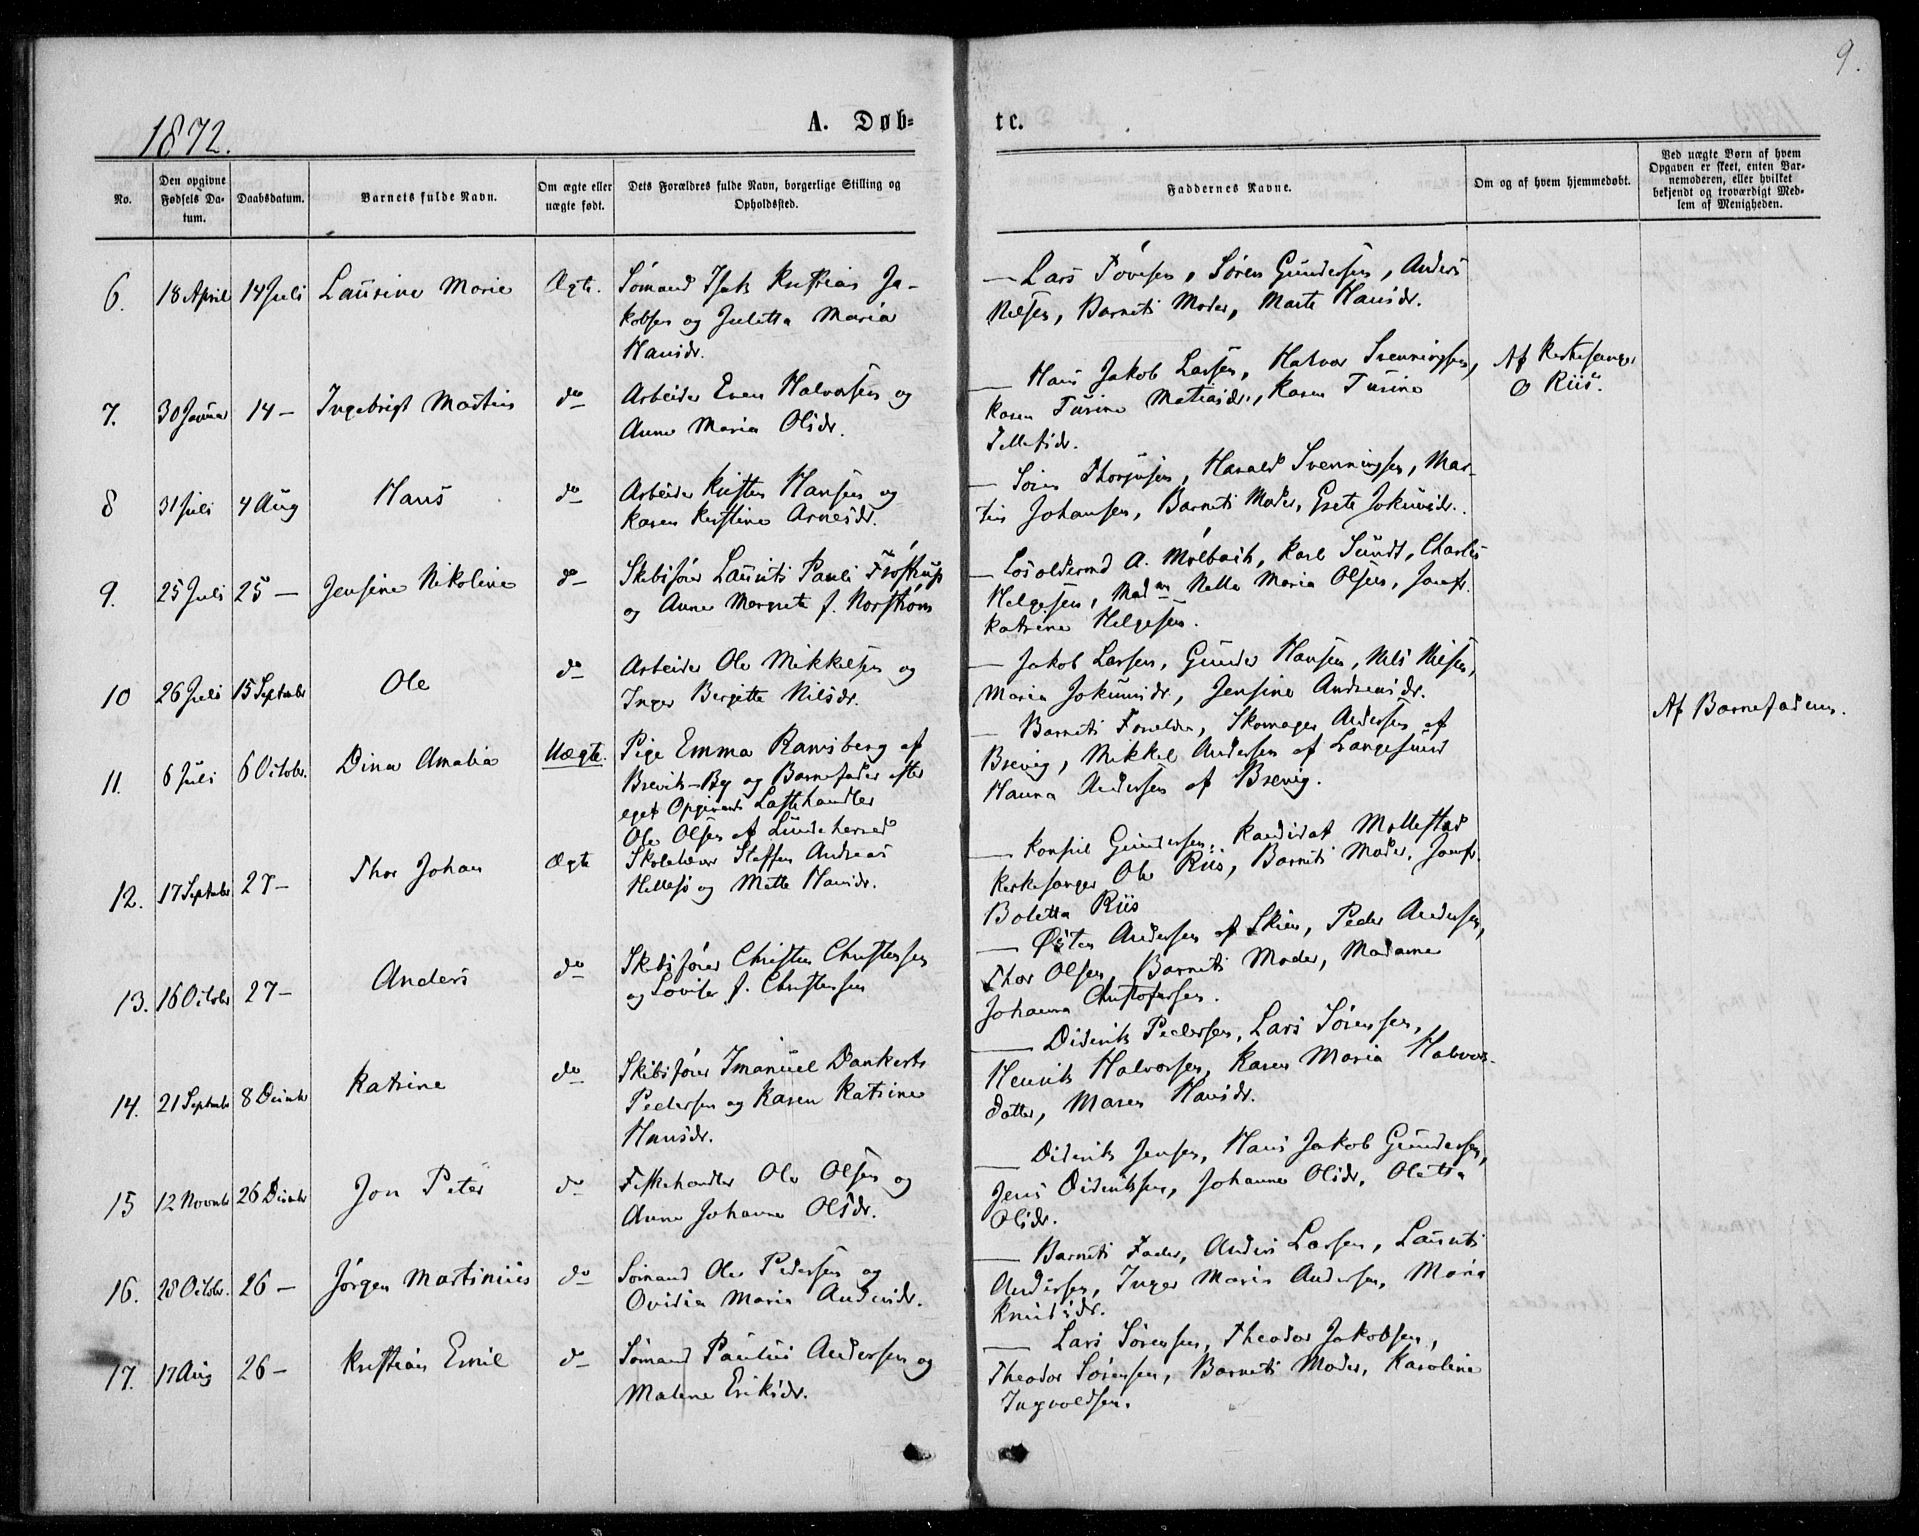 9.
1872.
A. Døb=
te.
No.
Den opgivne Fødsels Datum.
Daabsdatum.
Barnets fulde Navn.
Om ægte eller uægte født.
Dets Forældres fulde Navn, borgerlige Stilling og Opholdssted.
Faddernes Navne.
Om og af hvem hjemmedøbt.
Ved uægte Børn af hvem Opgaven er skeet, enten Barnemoderen, eller hvilket bekjendt og troværdigt Medlem af Menigheden.
6. 18 April 14 Juli Laurine Marie Ægte.
Sømand Isak Kristian Ja-
kobsen og Juletta Maria
Hansdr.
— Lars Tovesen, Søren Gundersen, Anders
Nilsen, Barnets Moder, Marte Hansdr.
7. 30 Januar 14 — Ingebrigt Martin do
Arbeider Even Halvorsen og
Anne Maria Olsdr.
— Hans Jakob Larsen, Halvor Svenningsen,
Karen Turine Matiasdr., Karen Turine
Tellefsdr.
Af Kirkesanger
O Riis.
8 31 Juli 4 Aug Hans do
Arbeider Kristen Hansen og
Karen Kirstine Arnesdr.
— Søren Thorjusen, Harald Svenningsen, Mar-
tin Johansen, Barnets Moder, Grete Jokumsdr.
9. 25 Juli 25 — Jensine Nikoline do
Skibsfører Laurits Pauli Frøstrup
og Anne Margrete f. Norstrøm
— Losoldermd A. Molbach, Karl Sundt, Charles
Helgesen, Madm Nella Maria Olsen, Jomfr.
Katrine Helgesen.
10 26 Juli 15 Septmbr Ole do
Arbeider Ole Mikkelsen og
Inger Bergitte Nilsdr.
— Jakob Larsen, Gunder Hansen, Nils Nilsen,
Maria Jokumsdr, Jensine Andreasdr.
11. 6 Juli 6 Octobr. Dina Amalia Uægte.
Pige Emma Ramsberg af
Brevik-By og Barnefader efter
eget Opgivende Lasthandler
Ole Olsen af Lundeherred
— Barnets Forældre, Skomager Andersen af
Brevig, Mikkel Andersen af Langesund
Hanna Andersen af Brevig.
Af Barnefaderen.
12. 17 Septmbr 27 — Thor Johan Ægte
Skolelærer Steffen Andreas
Hellesø og Mette Hansdr.
— Konsul Gundersen, Kandidat Mollestad
Kirkesanger Ole Riis, Barnets Moder, Jomfr.
Boletta Riis
13. 16 Octobr 27 — Anders do
Skibsfører Christen Christensen
og Lovise f. Christensen
— Østen Andersen af Skien, Peder Andersen,
Thor Olsen, Barnets Moder, Madame
Johanna Christofersen.
14. 21 Septmbr 8 Decmbr Katrine do
Skibsfører Imanuel Dankerts
Pedersen og Karen Katrine
Hansdr.
— Diderik Pedersen, Lars Sørensen,
Henrik Halvorsen, Karen Maria Halvors-
datter, Maren Hansdr.
15 12 Novmbr 26 Decmbr Jon Peter do
Fiskehandler Ole Olsen og
Anne Johanne Olsdr.
— Diderik Jensen, Hans Jakob Gundersen,
Jens Dideriksen, Johanne Olsdr, Oletta
Olsdr.
16. 28 Octobr. 26 — Jørgen Martinius do
Sømand Ole Pedersen og
Ovidia Maria Andersdr.
— Barnets Fader, Anders Larsen, Laurits
Andersen, Inger Maria Andersen, Maria
Knudsdr.
17. 17 Aug 26 — Kristian Emil do
Sømand Paulus Andersen og
Malene Eriksdr.
— Lars Sørensen, Theodor Jakobsen,
Theodor Sørensen, Barnets Moder, Karoline
Ingvoldsen.